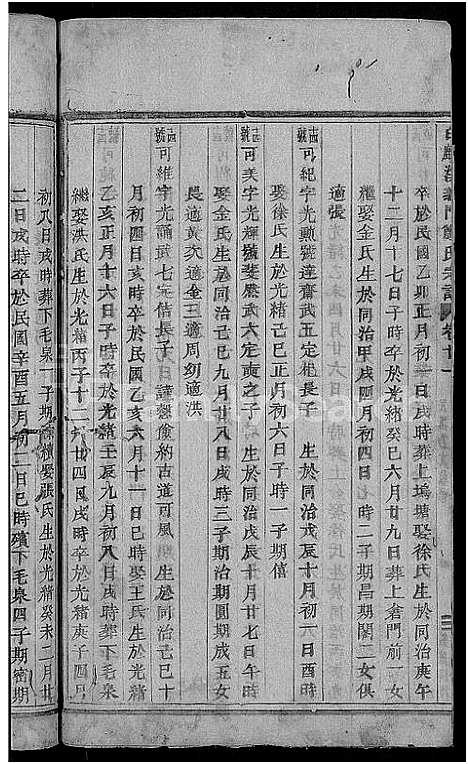 卒於民國乙卯正月初六日戌時葬上塢塘娶徐氏生於同治庚午
十二月十七日子時卒於光緒癸巳六月廿九日葬上倉門前一女
繼娶金氏生於同治甲戌四月初四日時二子期昌期閏二女俱
適張
可紀字光勳號達齋武五定相長子 生於同治戊辰十月初六日酉時
娶徐氏生於同治己巳正月初六日時一子期僖
可美字光輝號斐 武六定 之子 生於同治戊辰十月廿七日午時
娶金氏生於同治己巳十一月廿八日戌時三子期治 圓期成五女
長適黃次適金三適周幼適洪
可維字光誦武七定 長子 謹 儉約古道可風 生於同治己巳十
月初四日亥時卒於民國乙亥六月十一日巳時娶王氏生於光緒
乙亥正月十六日子時卒於光緒壬辰九月初八日戌時葬下毛泉
繼娶洪氏生於光緒丙子十二月廿四日戌時卒於光緒庚子四月
初八日戌時葬下毛泉一子期 續娶張氏生於光緒癸未二月廿
二日戌時卒於民國辛酉五月初二日巳時殯下毛泉四子期 期